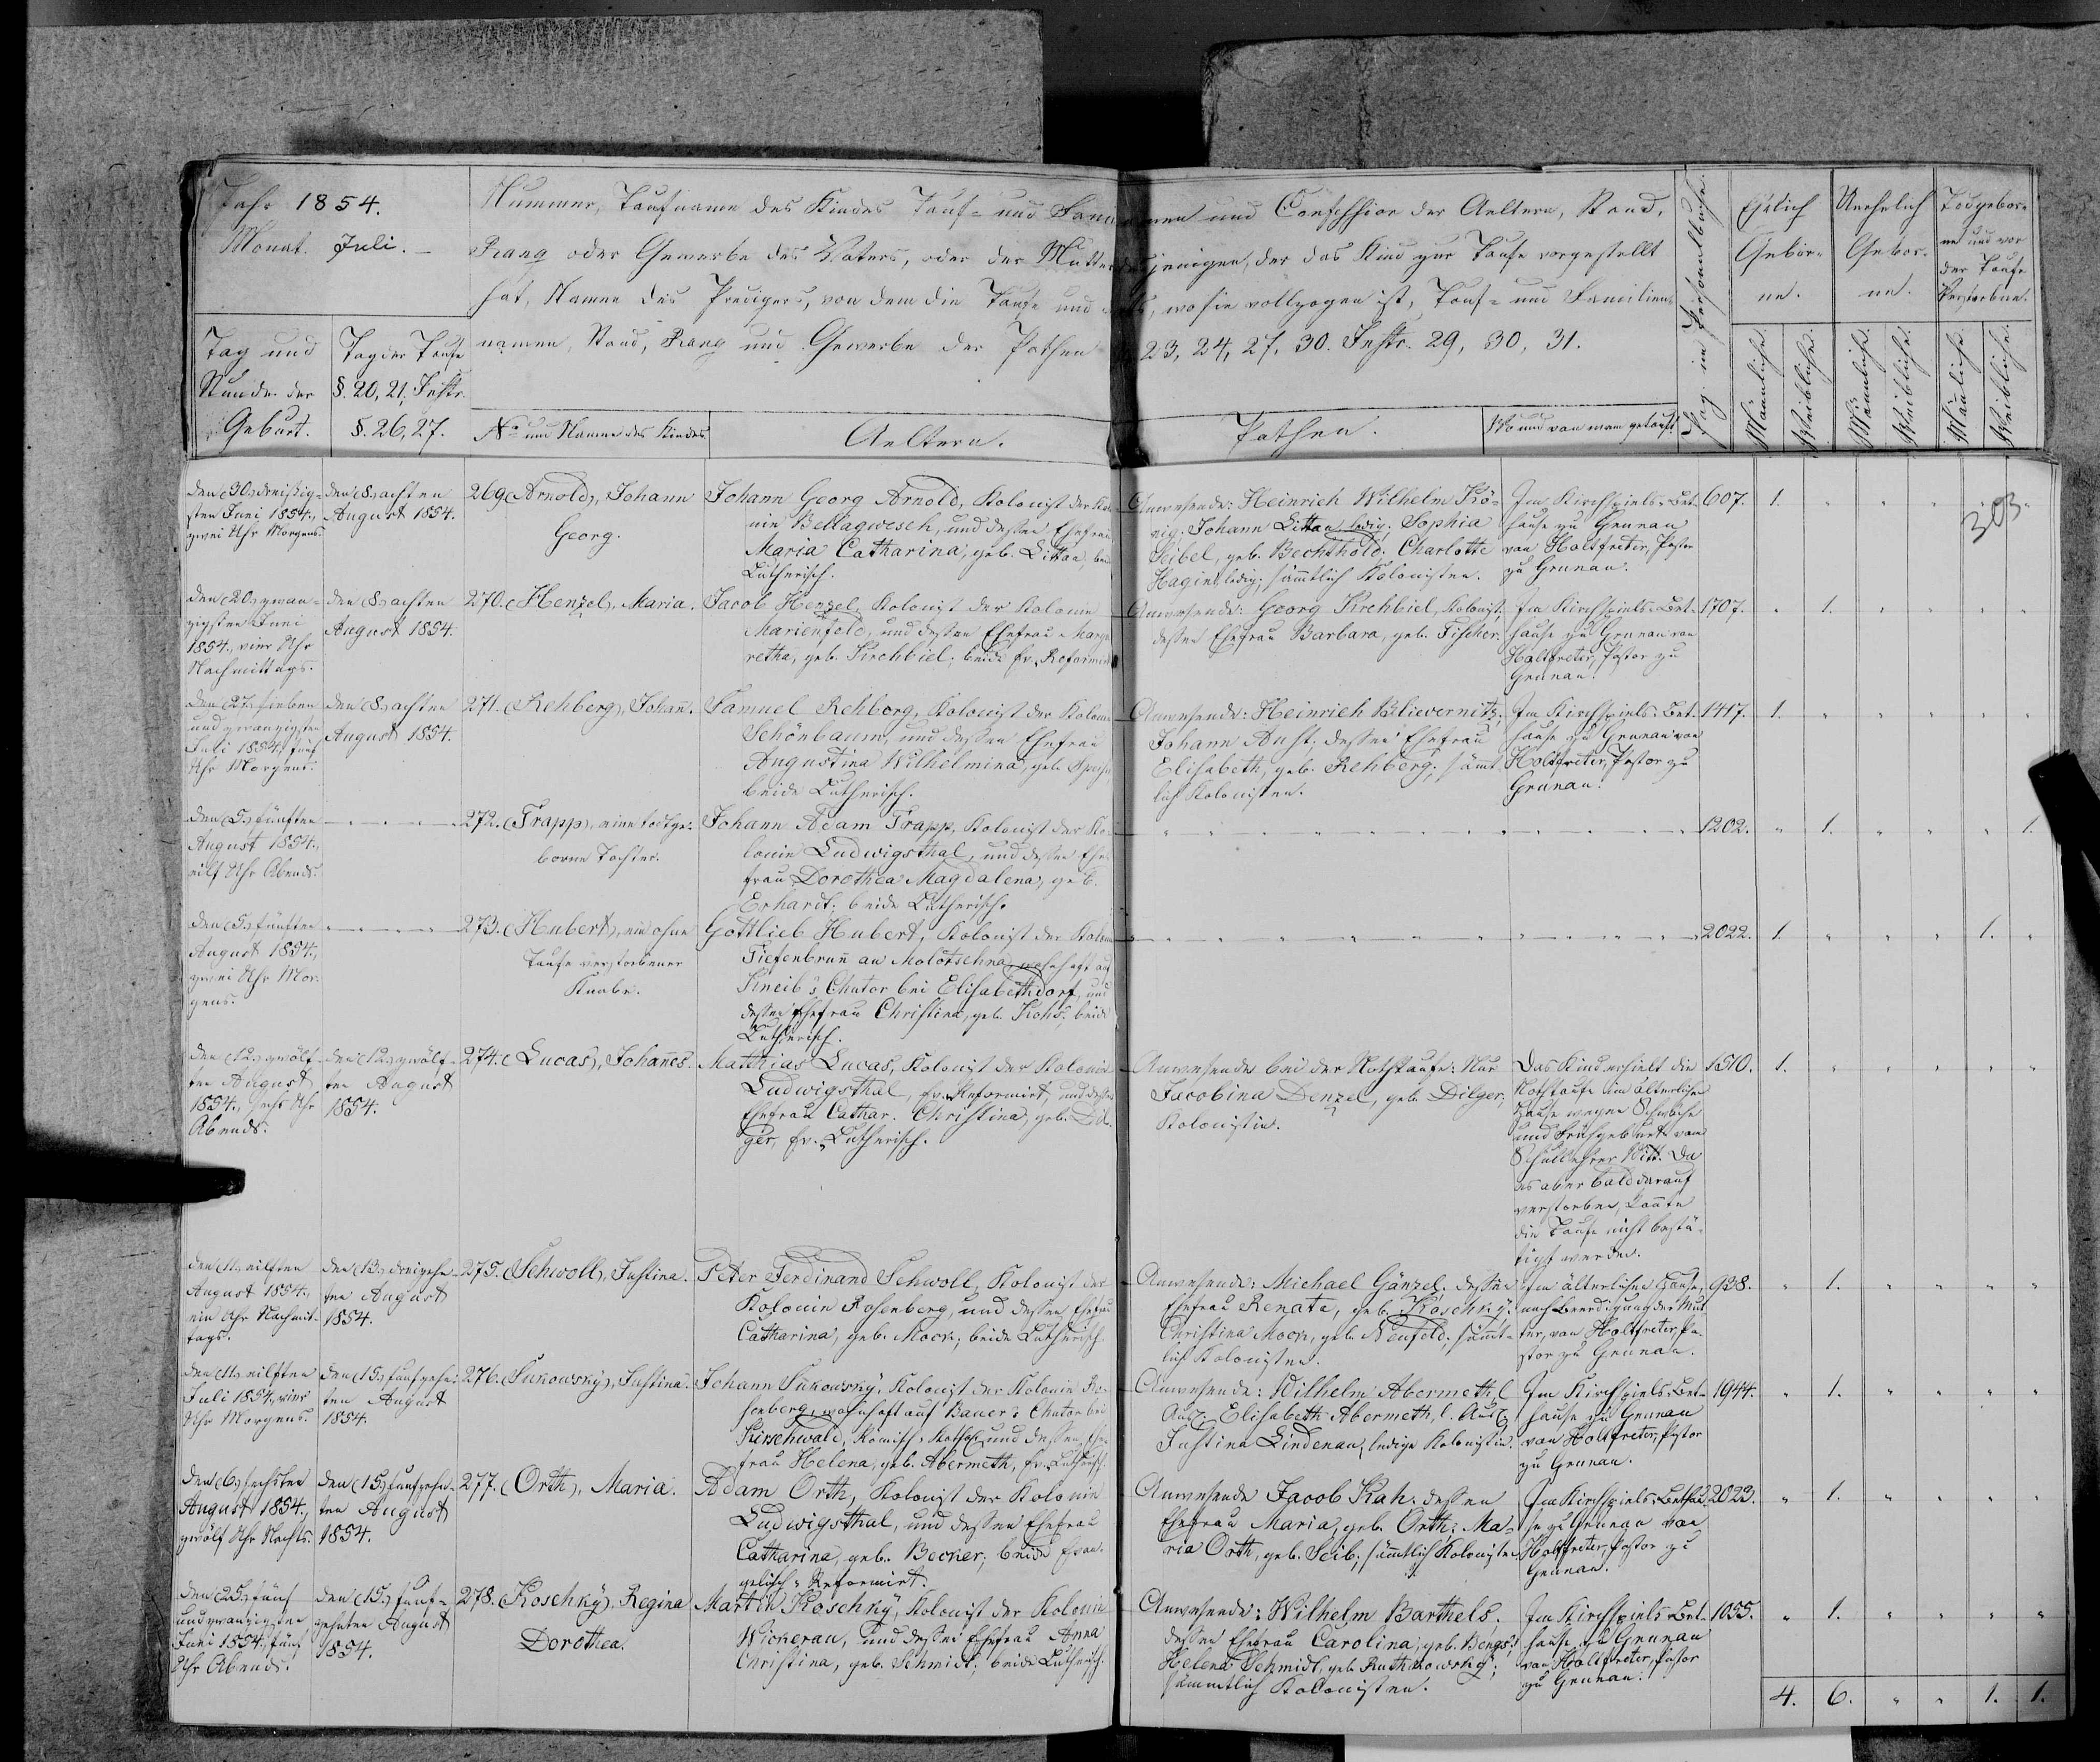 Jahr 1854.
Monat. Juli.
Nummer, Taufname des Kindes Tauf- und Familiennamen und Confession der Aeltern, Stand,
Rang oder Gewerbe des Vaters, oder der Mutter desjenigen, der das Kind zur Taufe vorgestellt
hat, Namen des Predigers, von dem die Taufe und wo sie vollzogen ist, Tauf- und Familien-
namen, Stand, Rang und Gewerbe der Pathen 23, 24, 27, 30. Instr. 29, 30, 31.
Tag und
Stunde der
Geburt.
Tag der Taufe
§. 20, 21, Instr.
§. 26, 27.
No und Name des Kindes
Aeltern.
Pathen.
Wo und von wem getauft
Pag. im Personalbuche.
Ehelich
Gebor-
ne.
Unehelich
Gebor-
ne.
Todgebor-
ne und vor
der Taufe
Verstorbne.
Männliche.
Weibliche.
Männliche.
Weibliche.
Männliche
Weibliche.
303.
den (30.) dreißig-
sten Juni 1854.,
zwei Uhr Morgens.
den (8.) achten
August 1854.
269. (Arnold), Johann
Georg.
Johann Georg Arnold, Kolonist der Kolo-
nie Bellagwesch, und dessen Ehefrau
Maria Catharina, geb. Littau, beide
Lutherisch.
Anwesende: Heinrich Wilhelm Kö-
nig. Johann Littau, ledig; Sophia
Seibel, geb. Bechthold; Charlotte
Hagin, ledig; sämtlich Kolonisten.
Im Kirchspiels-Bet-
hause zu Grunau
von Holtfreter, Pastor
zu Grunau.
607. 1.
den (20.) zwan-
zigsten Juni
1854., vier Uhr
Nachmittags.
den (8.) achten
August 1854.
270. (Henzel), Maria.
Jacob Henzel, Kolonist der Kolonie
Marienfeld, und dessen Ehefrau Marga-
retha, geb. Krehbiel; beide Ev. Reformirt
Anwesende: Georg Krehbiel, Kolonist;
dessen Ehefrau Barbara, geb. Fischer.
Im Kirchspiels-Bet-
hause zu Grunau von
Holtfreter, Pastor zu
Grunau.
1707. " 1. " " " "
den (27.) sieben
und zwanzigsten
Juli 1854., fünf
Uhr Morgens.
den (8.) achten
August 1854.
271. (Rehberg), Johañ.
Samuel Rehberg, Kolonist der Kolonie
Schönbaum, und dessen Ehefrau
Augustina Wilhelmina, geb.
beide Lutherisch.
Anwesende: Heinrich Bliewernitz;
Johann Anhs; dessen Ehefrau
Elisabeth, geb. Rehberg; sämt-
lich Kolonisten.
Im Kirchspiels-Bet-
hause zu Grunau von
Holtfreter, Pastor zu
Grunau.
1417. 1. " " " " "
den (5.) fünften
August 1854.,
eilf Uhr Abends.
272. (Trapp), eine todtge-
borne Tochter.
Johann Adam Trapp, Kolonist der Ko-
lonie Ludwigsthal, und dessen Ehe-
frau Dorothea Magdalena, geb.
Erhardt; beide Lutherisch.
1202. " 1. " " " 1.
den (5.) fünften
August 1854.,
zwei Uhr Mor-
gens.
273. (Hubert), ein ohne
Taufe verstorbener
Knabe.
Gottlieb Hubert, Kolonist der Kolonie
Tiefenbruñ an Molotschna, wohnhaft auf
Kneib's Chutor bei Elisabethdorf, und
dessen Ehefrau Christina, geb. Kohs; beide
Lutherisch.
2022. 1. " " " 1. "
den (12.) zwölf-
ten August
1854., sechs Uhr
Abends.
den (12.) zwölf-
ten August
1854.
274. (Lucas), Johañes.
Matthias Lucas, Kolonist der Kolonie
Ludwigsthal, Ev. Reformirt, und dessen
Ehefrau Cathar. Christina, geb. Dil-
ger, Ev. Lutherisch.
Anwesende bei der Nothtaufe: Nur
Jacobina Denzel, geb. Dilger,
Kolonistin.
Das Kind erhielt die
Nothtaufe im älterlichen
Hause wegen Schwäche
und Frühgeburt vom
Schullehrer Witt. Da
es aber bald darauf
verstorben, konnte
die Taufe nicht bestä-
tigt werden.
1510. 1. " " " " "
den (11.) eilften
August 1854.,
ein Uhr Nachmit-
tags.
den (13.) dreizehn-
ten August
1854.
275. (Schwoll), Justina.
Peter Ferdinand Schwoll, Kolonist der
Kolonie Rosenberg, und dessen Ehefrau
Catharina, geb. Mock; beide Lutherisch.
Anwesende: Michael Gänzel; dessen
Ehefrau Renate, geb. Koschky;
Christina Mock, geb. Neufeld; sämt-
lich Kolonisten.
Im älterlichen Hause,
nach Beerdigung der Mut-
ter, von Holtfreter, Pa-
stor zu Grunau.
938. " 1. " " " "
den (11.) eilften
Juli 1854., vier
Uhr Morgens.
den (15.) fünfzehn-
ten August
1854.
276. (Sukowsky), Justina.
Johann Sukowsky, Kolonist der Kolonie Ro-
senberg, wohnhaft auf Bauer's Chutor bei
Kirschwald, Römisch-Kathol. und dessen Ehe-
frau Helena, geb. Abermeth, Ev. Lutherisch
Anwesende: Wilhelm Abermeth, l.
Ausl. Elisabeth Abermeth, l. Ausl.
Justina Lindenau, ledige Kolonistin.
Im Kirchspiels-Bet-
hause zu Grunau
von Holtfreter, Pastor
zu Grunau.
1944. " 1. " " " "
den (6.) sechsten
August 1854.,
zwölf Uhr Nachts.
den (15.) fünfzehn-
ten August
1854.
277. (Orth), Maria.
Adam Orth, Kolonist der Kolonie
Ludwigsthal, und dessen Ehefrau
Catharina, geb. Becker; beide Evan-
gelisch-Reformirt.
Anwesende Jacob Rah; dessen
Ehefrau Maria, geb. Orth; Ma-
ria Orth, geb. Seib; sämtlich Kolonisten
Im Kirchspiels-Bethau-
se zu Grunau von
Holtfreter, Pastor zu
Grunau.
2023. " 1. " " " "
den (25.) fünf
und zwanzigsten
Juni 1854., fünf
Uhr Abends.
den (15.) fünf-
zehnten August
1854.
278. (Koschky), Regina
Dorothea.
Martin Koschky, Kolonist der Kolonie
Wickerau, und dessen Ehefrau Anna
Christina, geb. Schmidt; beide Lutherisch.
Anwesende: Wilhelm Barthels;
dessen Ehefrau Carolina, geb. Bengs;
Helena Schmidt, geb. Ruthkowsky;
sämmtlich Kolonisten.
Im Kirchspiels-Bet-
hause zu Grunau
von Holtfreter, Pastor
zu Grunau.
1055. " 1. " " " "
4. 6. " " 1. 1.